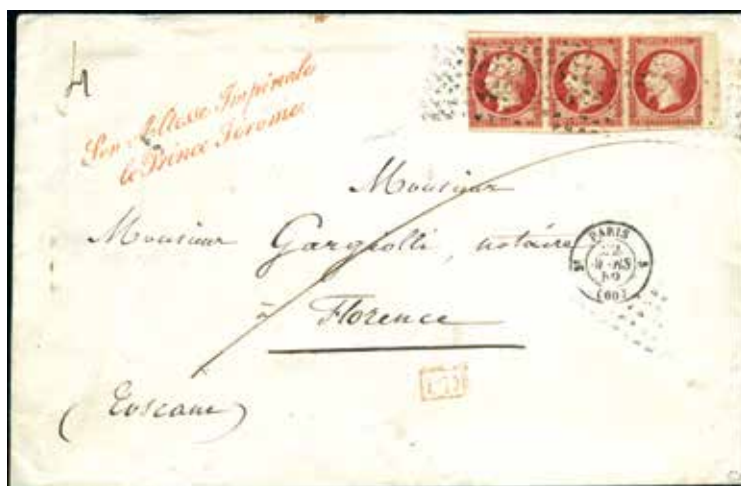 4
Son Altesse Impériale
le Prince Jérome
Monsieur
Monsieur Gargiolli, notaire
à Florence
(Toscane)
PARIS
(60)
P.D.